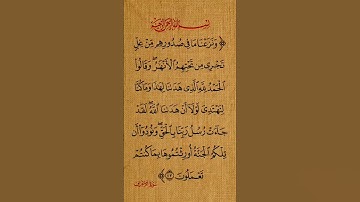 بسم الله الرحمن الرحيم
﴿ وَنَزَعْنَا مَا فِي صُدُورِهِم مِّنْ غِلٍّ
تَجْرِي مِن تَحْتِهِمُ الْأَنْهَٰرُ وَقَالُوا
الْحَمْدُ لِلَّهِ الَّذِي هَدَىٰنَا لِهَٰذَا وَمَا كُنَّا
لِنَهْتَدِيَ لَوْلَا أَنْ هَدَىٰنَا اللَّهُ لَقَدْ
جَاءَتْ رُسُلُ رَبِّنَا بِالْحَقِّ وَنُودُوا أَن
تِلْكُمُ الْجَنَّةُ أُورِثْتُمُوهَا بِمَا كُنتُمْ
تَعْمَلُونَ ﴿٤٣﴾